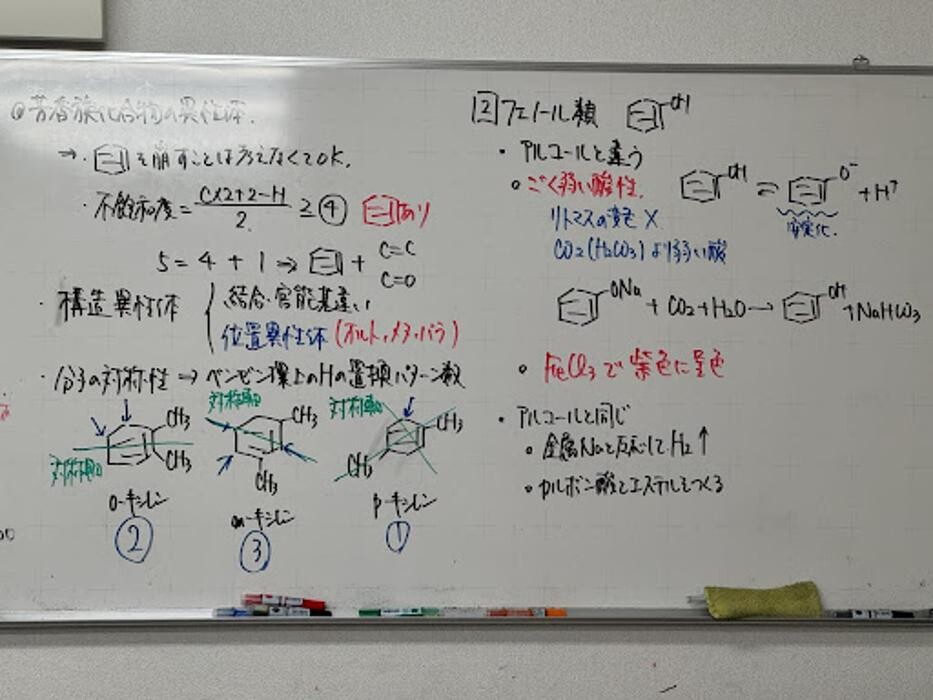 芳香族化合物の異性体.
→ を崩すことは考えなくてOK.
・不飽和度 = C×2+2-H / 2 ≧ ④ あり
5 = 4 + 1 ⇒ + C=C
C=O
・構造異性体 { 結合・官能基違い
位置異性体 (オルト,メタ,パラ)
・分子の対称性 ⇒ ベンゼン環上のHの置換パターン数
対称軸 CH3 CH3 o-キシレン ②
対称軸 CH3 CH3 m-キシレン ③
対称軸 CH3 CH3 p-キシレン ①
2 フェノール類 OH
・アルコールと違う
ごく弱い酸性. OH ⇌ O- + H+
安定化.
リトマスの変色 ×
CO2(H2CO3)より弱い酸
ONa + CO2 + H2O → OH + NaHCO3
FeCl3で紫色に呈色
・アルコールと同じ
金属Naと反応してH2↑
カルボン酸とエステルをつくる